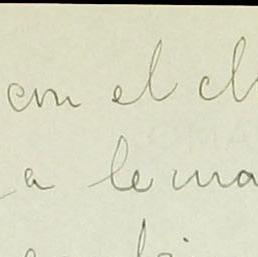 con el cl
a lema